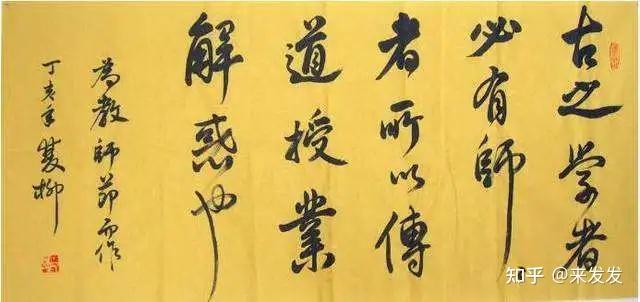 古之学者
必有師
者所以傳
道授業
解惑也
為教師節而作
丁亥年柳
知乎 @来发发